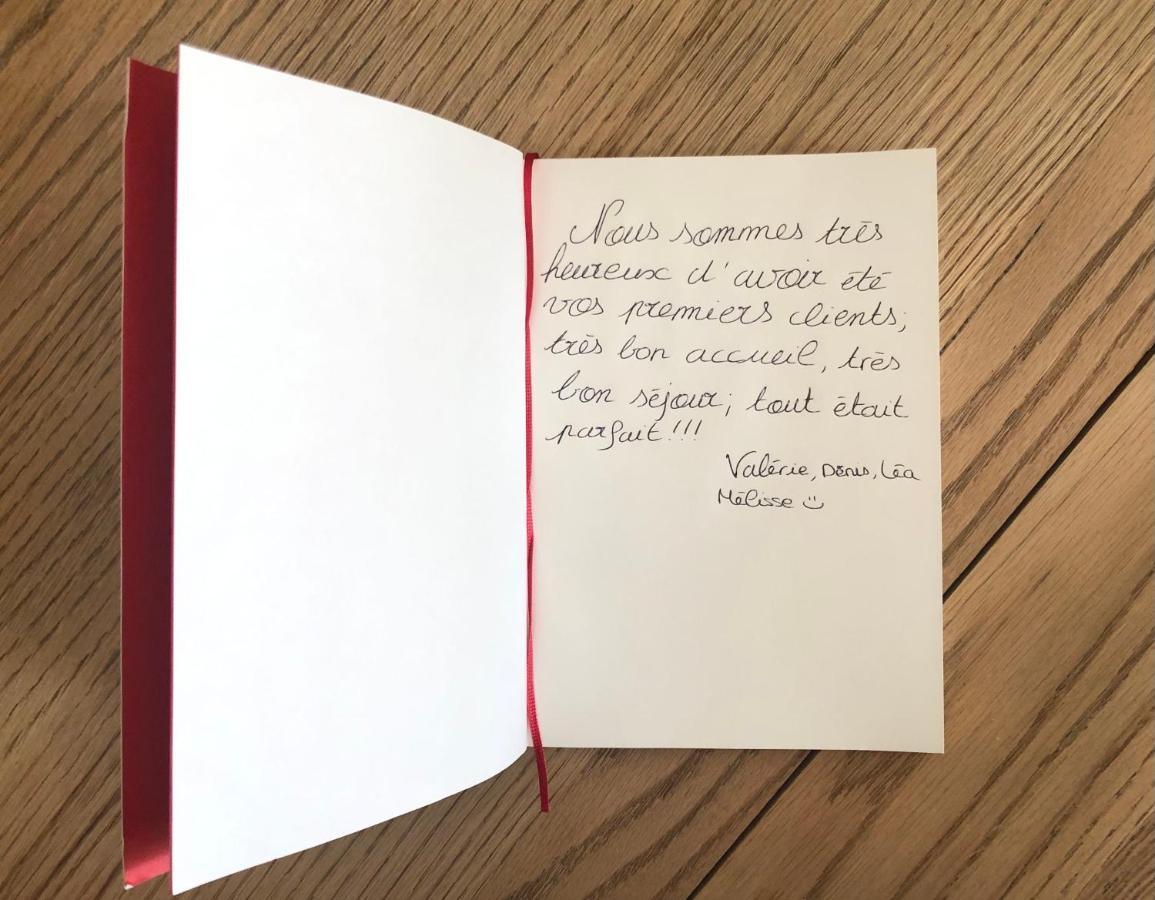 Nous sommes très
heureux d'avoir été
vos premiers clients;
très bon accueil, très
bon séjour; tout était
parfait!!!
Valérie, Denis, Léa
Mélisse ☺